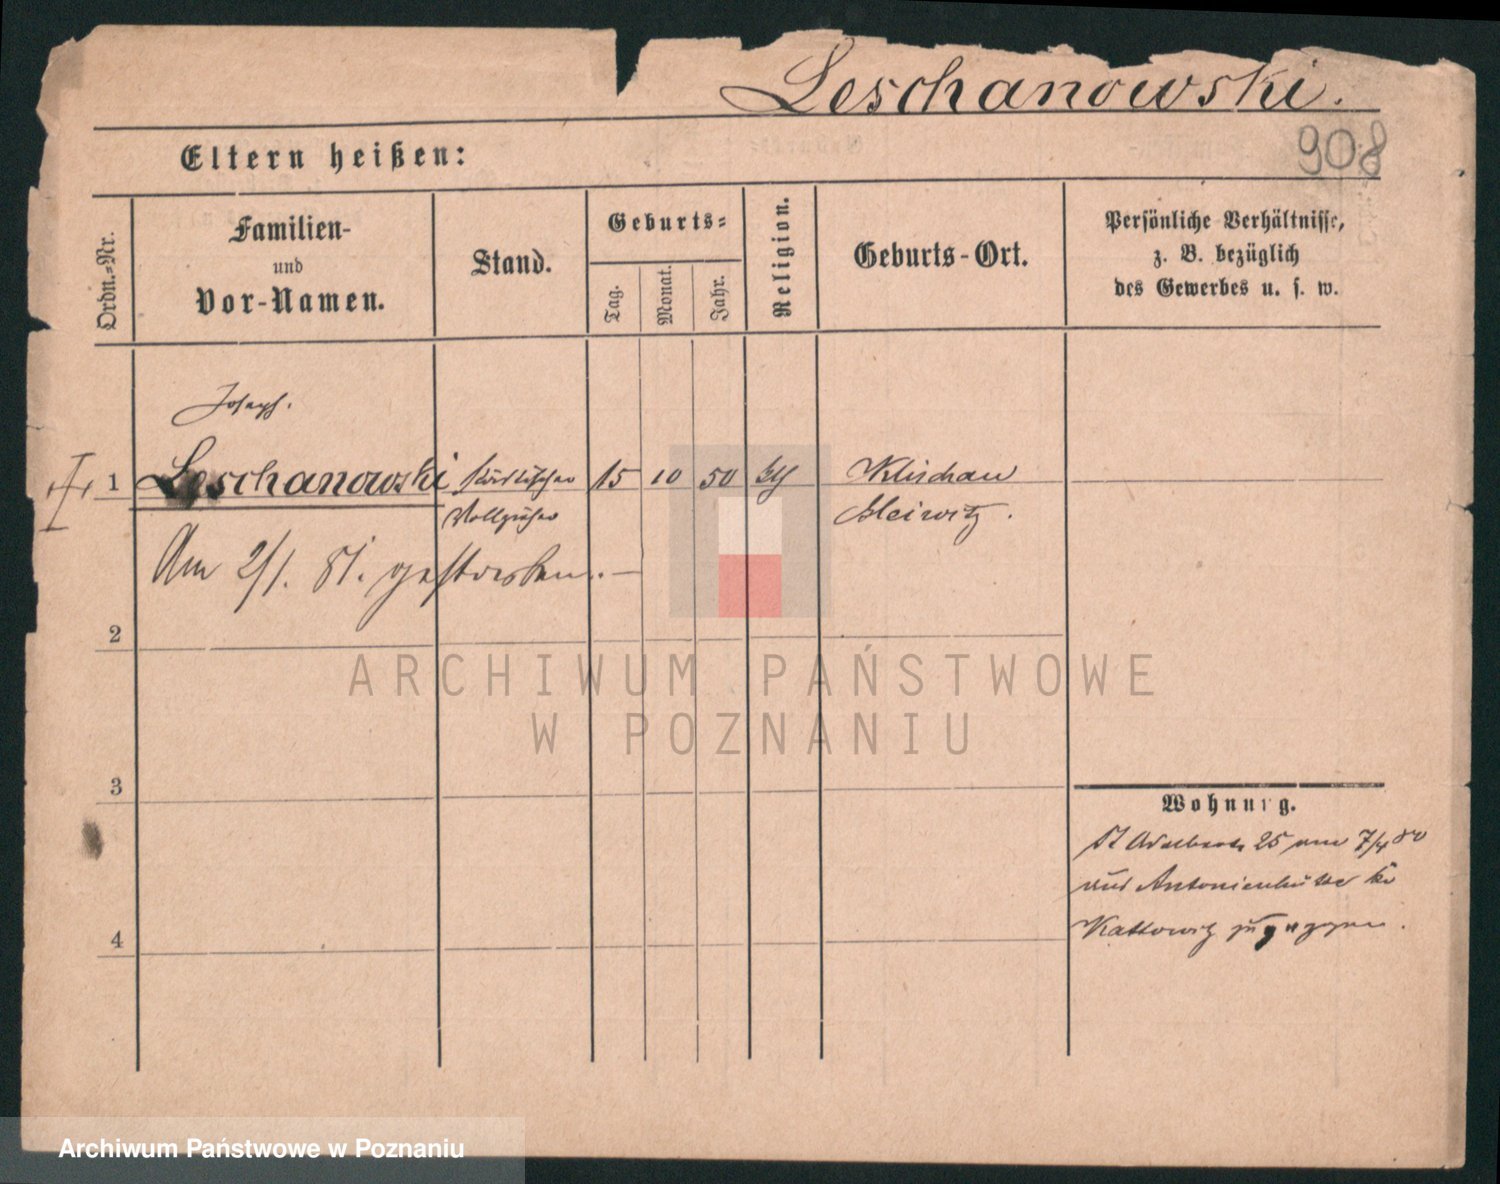 Leschanowski.
908
Eltern heißen:
Ordn.-Nr.
Familien-
und
Vor-Namen.
Stand.
Geburts-
Tag.
Monat.
Jahr.
Religion.
Geburts-Ort.
Persönliche Verhältnisse,
z. B. bezüglich
des Gewerbes u. s. w.
Joseph.
1 Leschanowski 15 10 50 Klischau
Am 2/1. 81. gestorben. —
2
ARCHIWUM PAŃSTWOWE
W POZNANIU
3
Wohnung.
St Adalbert 25 7/4 80
aus Antonienhütte
4
Kattowitz zugezogen.
Archiwum Państwowe w Poznaniu